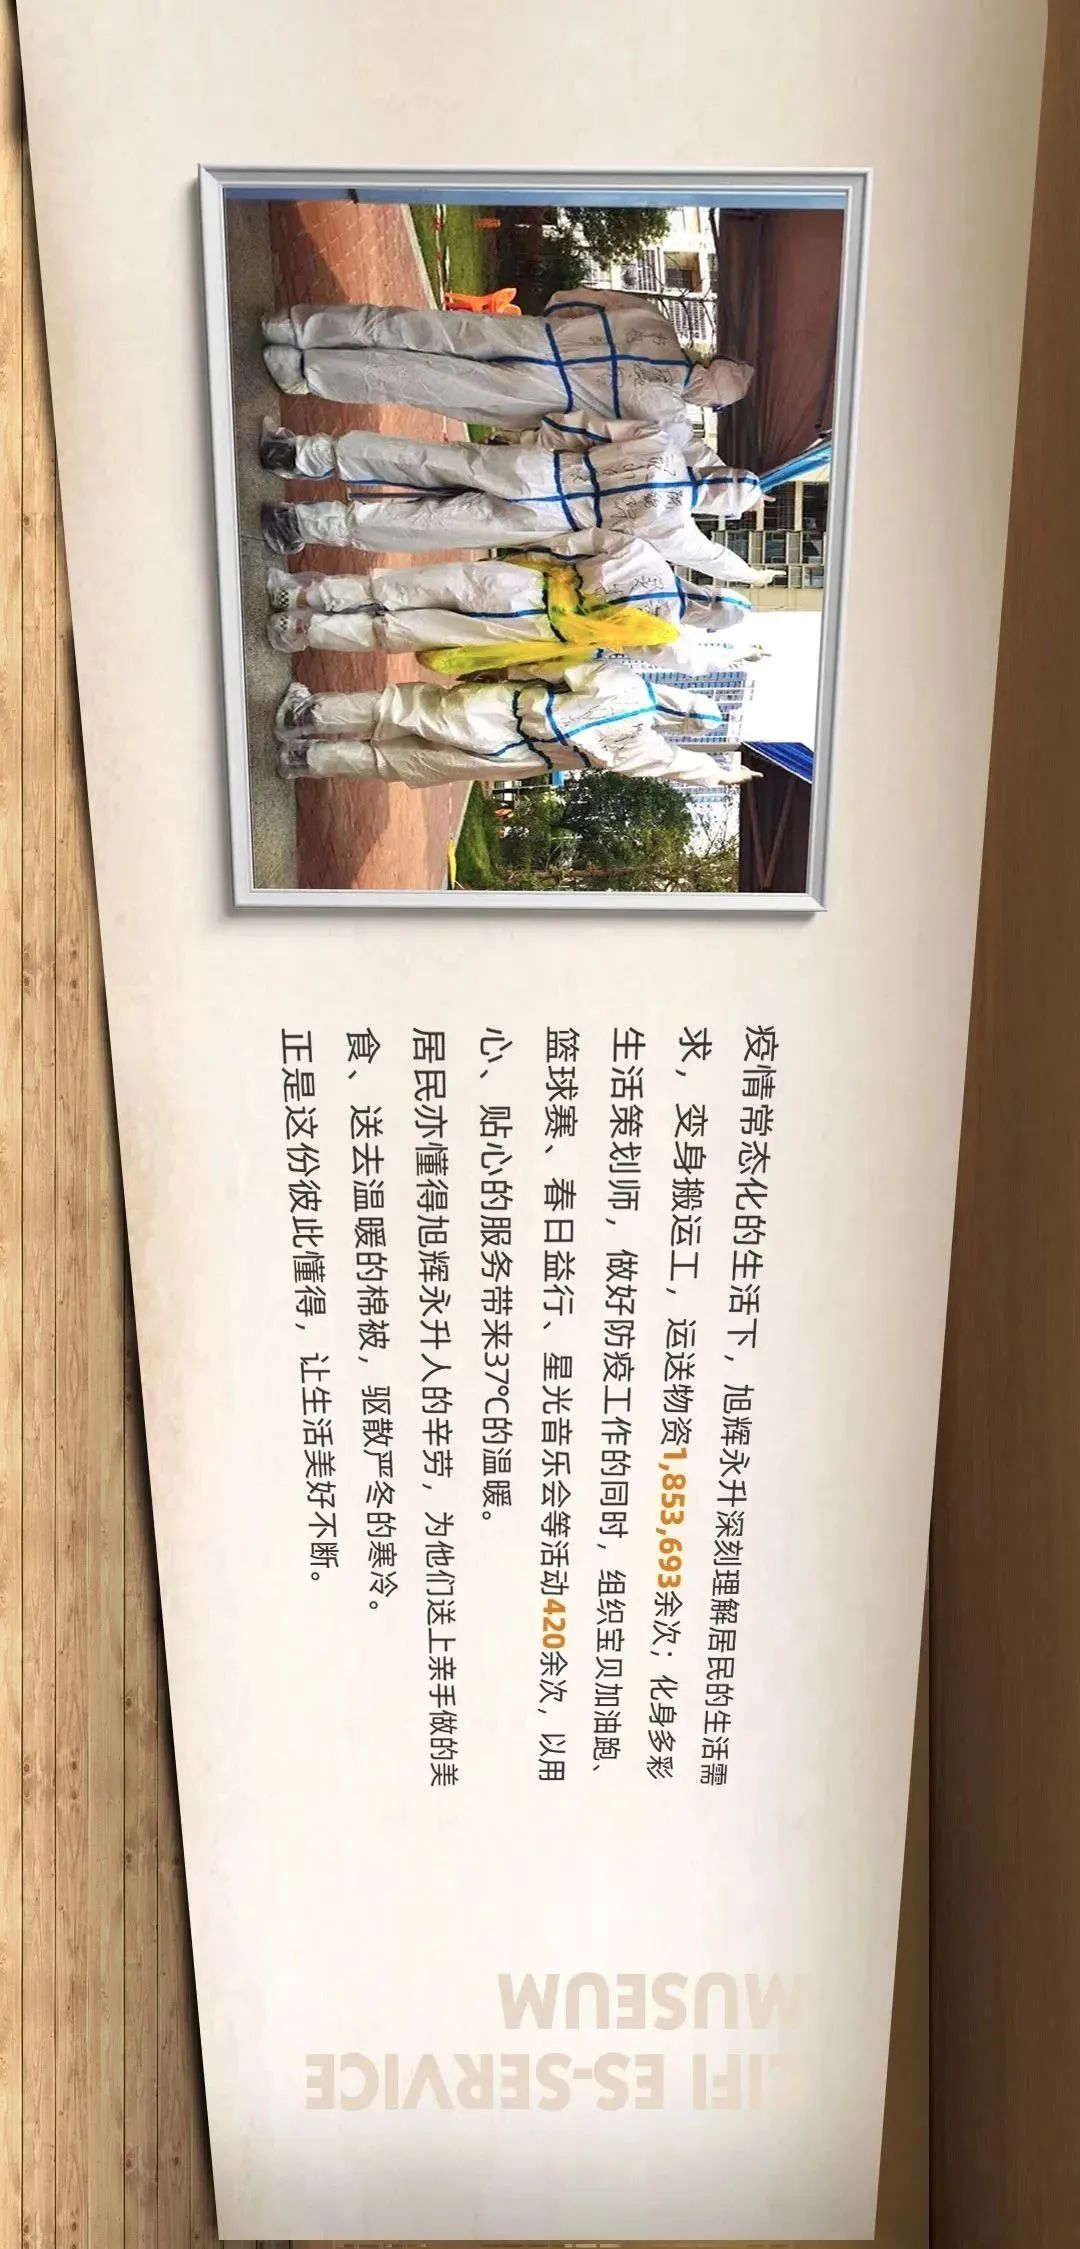 疫情常态化的生活下，旭辉永升深刻理解居民的生活需
求，变身搬运工，运送物资1,853,693余次；化身多彩
生活策划师，做好防疫工作的同时，组织宝贝加油跑、
篮球赛、春日益行、星光音乐会等活动420余次，以用
心、贴心的服务带来37℃的温暖。
居民亦懂得旭辉永升人的辛劳，为他们送上亲手做的美
食、送去温暖的棉被，驱散严冬的寒冷。
正是这份彼此懂得，让生活美好不断。
CIFI ES-SERVICE
MUSEUM